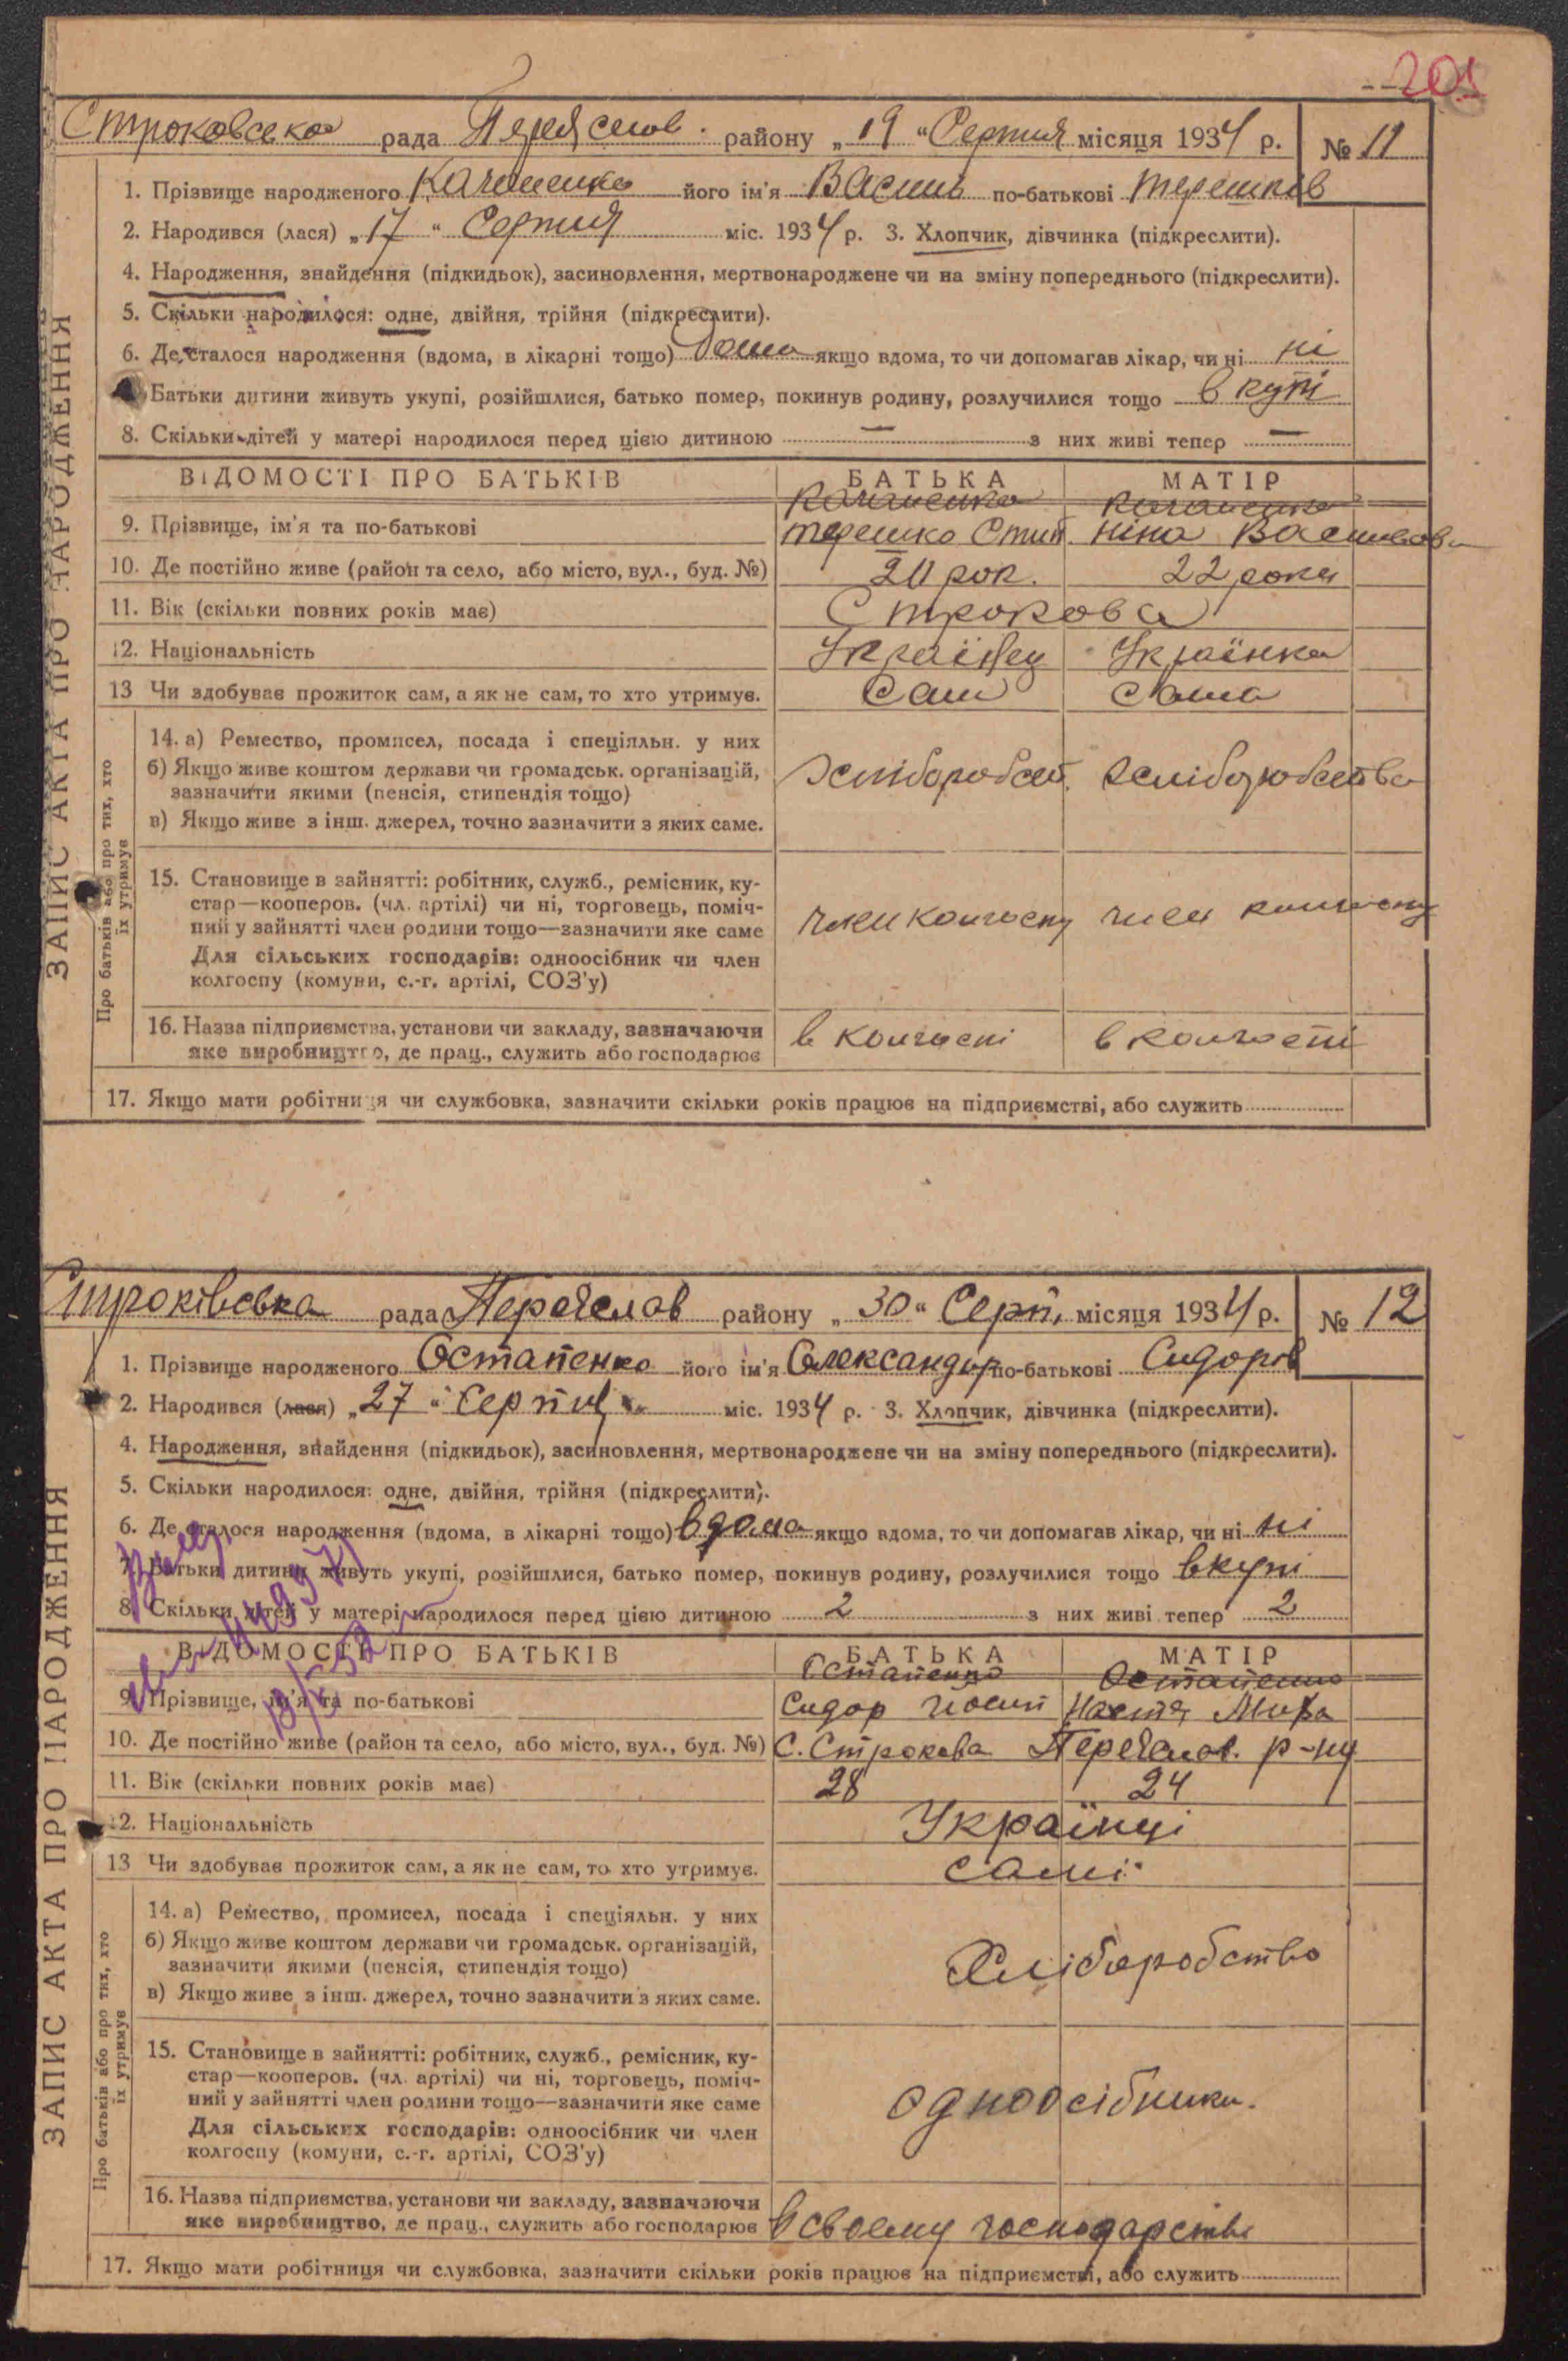 201
Строковська рада Переяслов. району „19“ Серпня місяця 1934 р. № 11
1. Прізвище народженого його ім'я Василь по-батькові Терешков
2. Народився (лася) „17“ Серпня міс. 1934 р. 3. Хлопчик, дівчинка (підкреслити).
4. Народження, знайдення (підкидьок), засиновлення, мертвонароджене чи на зміну попереднього (підкреслити).
5. Скільки народилося: одне, двійня, трійня (підкреслити).
6. Де сталося народження (вдома, в лікарні тощо) дома якщо вдома, то чи допомагав лікар, чи ні ні
Батьки дитини живуть укупі, розійшлися, батько помер, покинув родину, розлучилися тощо в купі
8. Скільки дітей у матері народилося перед цією дитиною — з них живі тепер —
ВІДОМОСТІ ПРО БАТЬКІВ БАТЬКА МАТІР
9. Прізвище, ім'я та по-батькові Терешко Стип. Ніна Василівна
10. Де постійно живе (район та село, або місто, вул., буд. №) рок. 22 роки
11. Вік (скільки повних років має) Строкова
12. Національність Українец Українка
13 Чи здобуває прожиток сам, а як не сам, то хто утримує. Сам Сама
ЗАПИС АКТА ПРО НАРОДЖЕННЯ
Про батьків або про тих, хто їх утримує
14. а) Ремество, промисел, посада і спеціяльн. у них
б) Якщо живе коштом держави чи громадськ. організацій,
зазначити якими (пенсія, стипендія тощо)
в) Якщо живе з інш. джерел, точно зазначити з яких саме.
15. Становище в зайнятті: робітник, служб., ремісник, ку-
стар—кооперов. (чл. артілі) чи ні, торговець, поміч-
ний у зайнятті член родини тощо—зазначити яке саме член колгоспу член колгоспу
Для сільських господарів: одноосібник чи член
колгоспу (комуни, с.-г. артілі, СОЗ'у)
16. Назва підприємства, установи чи закладу, зазначаючи
яке виробництво, де прац., служить або господарює в колгоспі в колгоспі
17. Якщо мати робітниця чи службовка, зазначити скільки років працює на підприємстві, або служить
Строківська рада Переяслов району „30“ Серп. місяця 1934 р. № 12
1. Прізвище народженого Остапенко його ім'я Олександр по-батькові Сидоров
2. Народився (лася) „27“ Серпня міс. 1934 р. 3. Хлопчик, дівчинка (підкреслити).
4. Народження, знайдення (підкидьок), засиновлення, мертвонароджене чи на зміну попереднього (підкреслити).
5. Скільки народилося: одне, двійня, трійня (підкреслити).
6. Де сталося народження (вдома, в лікарні тощо) вдома якщо вдома, то чи допомагав лікар, чи ні ні
7. Батьки дитини живуть укупі, розійшлися, батько помер, покинув родину, розлучилися тощо вкупі
8. Скільки дітей у матері народилося перед цією дитиною 2 з них живі тепер 2
ВІДОМОСТІ ПРО БАТЬКІВ БАТЬКА МАТІР
Остапенко Остапенко
9. Прізвище, ім'я та по-батькові Сидор Йосип Настя
10. Де постійно живе (район та село, або місто, вул., буд. №) С. Строкова Переяслов. р-ну
11. Вік (скільки повних років має) 28 24
12. Національність Українці
13 Чи здобуває прожиток сам, а як не сам, то хто утримує. самі
ЗАПИС АКТА ПРО НАРОДЖЕННЯ
Про батьків або про тих, хто їх утримує
14. а) Ремество, промисел, посада і спеціяльн. у них
б) Якщо живе коштом держави чи громадськ. організацій,
зазначити якими (пенсія, стипендія тощо) Хліборобство
в) Якщо живе з інш. джерел, точно зазначити з яких саме.
15. Становище в зайнятті: робітник, служб., ремісник, ку-
стар—кооперов. (чл. артілі) чи ні, торговець, поміч-
ний у зайнятті член родини тощо—зазначити яке саме одноосібники.
Для сільських господарів: одноосібник чи член
колгоспу (комуни, с.-г. артілі, СОЗ'у)
16. Назва підприємства, установи чи закладу, зазначаючи
яке виробництво, де прац., служить або господарює В своєму господарстві
17. Якщо мати робітниця чи службовка, зазначити скільки років працює на підприємстві, або служить